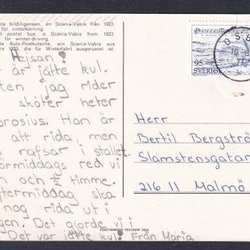 bildiligensen, en Scania-Vabis från 1923,
för vinterkörning.
postal bus, a Scania-Vabis from 1923.
for winter-driving.
Auto-Postkutsche, ein Scania-Vabis aus
1923 die für Winterfahrt ausgerüstet ist.
95
SVERIGE
Hejsan!
är jätte kul.
ten jag rider
sköter heter
brosius. Han är
att rida men
rafsar i stallet.
förmiddags red vi
en och ½ timme.
eftermiddag ska
nog rida ut i
gen. Det gjorde vi i
Det var jätte kul Från Maria
Herr
Bertil Bergström
Slamstensgatan
216 11 Malmö